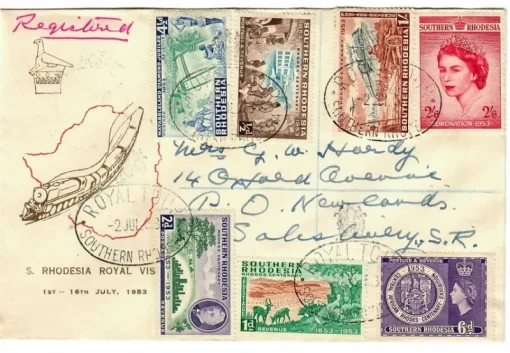 Registered
4½d
SOUTHERN RHODESIA
½d
SOUTHERN RHODESIA
1/-
SOUTHERN RHODESIA
SOUTHERN RHODESIA
2/6
2/6
CORONATION 1953
Mrs G. W. Hardy
14 Oxford Avenue
P.O. Newlands
Salisbury, S.R.
ROYAL TOUR
-2 JUL
SOUTHERN RHO
S. RHODESIA ROYAL VIS
1ST - 16TH JULY, 1953
2d
SOUTHERN RHODESIA
1853-1953
SOUTHERN RHODESIA
RHODES CENTENARY
1d
REVENUE
1853-1953
ROYAL TO
POSTAGE & REVENUE
1953
6d
SOUTHERN RHODESIA